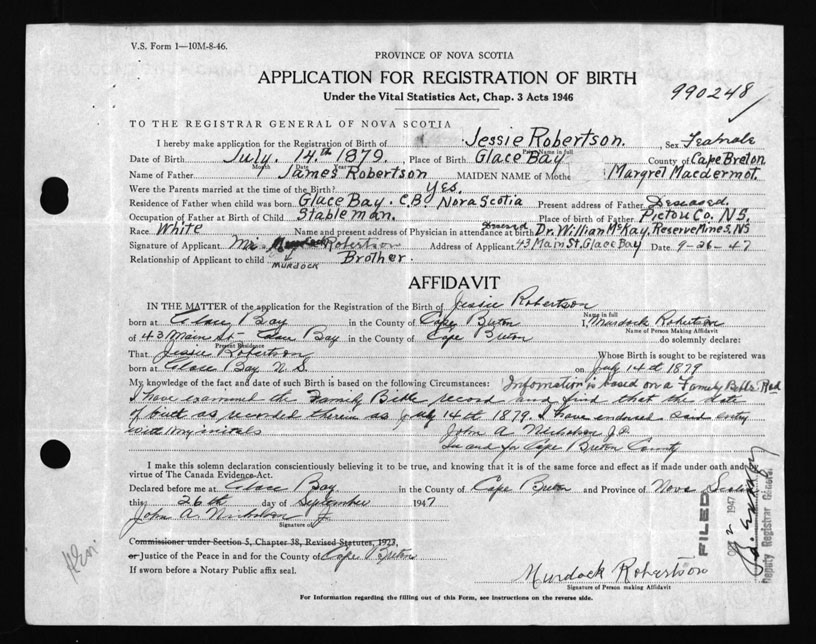 V.S. Form 1—10M-8-46.
PROVINCE OF NOVA SCOTIA
APPLICATION FOR REGISTRATION OF BIRTH
Under the Vital Statistics Act, Chap. 3 Acts 1946
990248
TO THE REGISTRAR GENERAL OF NOVA SCOTIA
I hereby make application for the Registration of Birth of Jessie Robertson. Sex Feamale
Print Name in full
Date of Birth July. 14.th 1879. Place of Birth Glace Bay County of Cape Breton
Month Day Year
Name of Father James Robertson MAIDEN NAME of Mother Margret Macdermot.
Were the Parents married at the time of Birth? Yes.
Residence of Father when child was born Glace Bay. C.B. Nova Scotia Present address of Father Deseased.
Occupation of Father at Birth of Child Stableman. Place of Birth of Father Pictou Co. N.S.
Race White Name and present address of Physician in attendance at birth Dr. William McKay, Reserve Mines, NS
Signature of Applicant Mr. Murdock Robertson Address of Applicant 43 Main St. Glace Bay Date 9-26-47
MURDOCK
Relationship of Applicant to child Brother.
AFFIDAVIT
IN THE MATTER of the application for the Registration of the Birth of Jessie Robertson
Name in full
born at Glace Bay in the County of Cape Breton I, Murdock Robertson
Name of Person Making Affidavit
of 43 Main St - Glace Bay in the County of Cape Breton do solemnly declare:
Present Residence
That Jessie Robertson Whose Birth is sought to be registered was
born at Glace Bay N.S. on July 14th 1879
My knowledge of the fact and date of such Birth is based on the following Circumstances: Information is based on a Family Bible Red
I have examined the Family Bible record and find that the date
of birth as recorded therein as July 14th 1879. I have endorsed said entry
with my initials John A Nicholson J.P.
In and for Cape Breton County
I make this solemn declaration conscientiously believing it to be true, and knowing that it is of the same force and effect as if made under oath and by
virtue of The Canada Evidence Act.
Declared before me at Glace Bay in the County of Cape Breton and Province of Nova Scotia
this 26th day of September 1947
John A. Nicholson J
Signature of
Commissioner under Section 5, Chapter 38, Revised Statutes, 1923,
or Justice of the Peace in and for the County of Cape Breton
If sworn before a Notary Public affix seal.
Murdock Robertson
Signature of Person making Affidavit
For Information regarding the filling out of this Form, see instructions on the reverse side.
FILED
OCT 2 1947
Deputy Registrar General